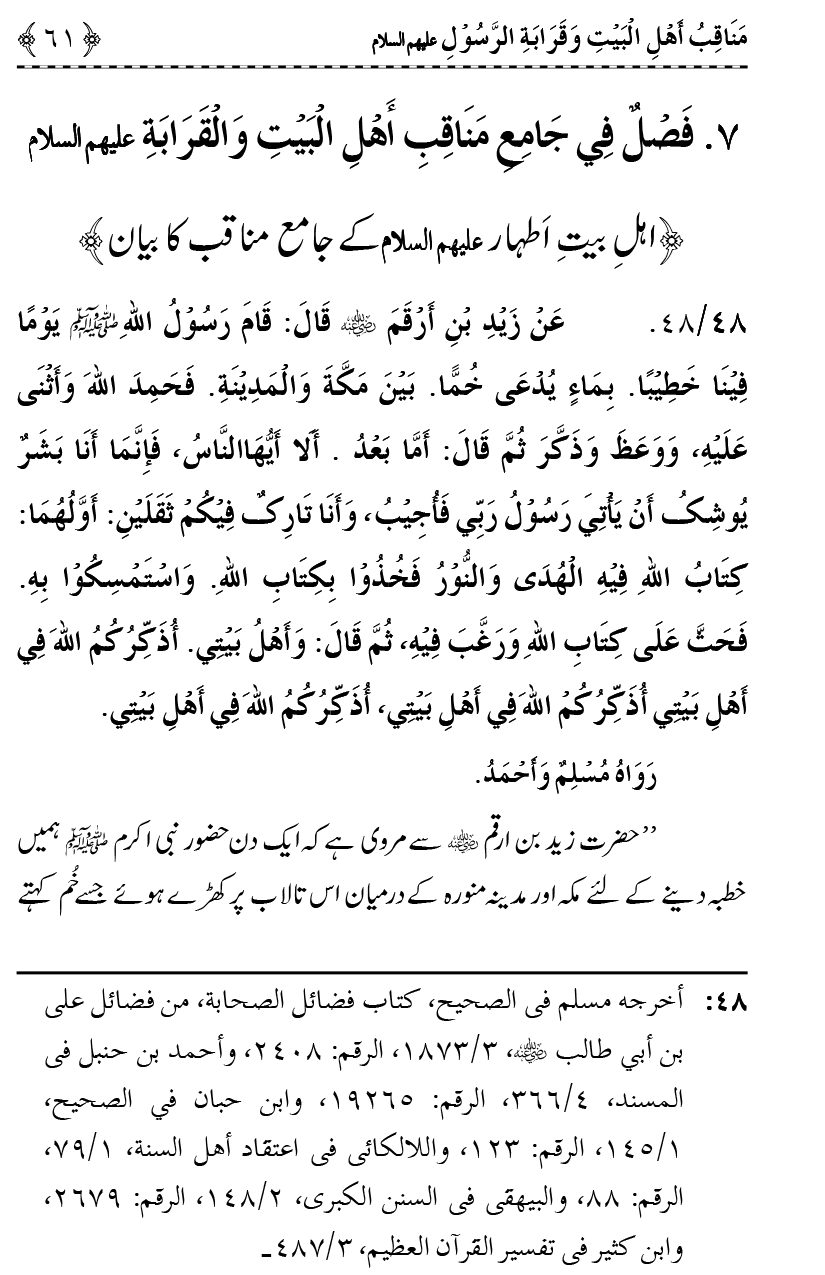 مَنَاقِبُ أَهْلِ الْبَيْتِ وَقَرَابَةِ الرَّسُوْلِ علیہم السلام ﴿٦١﴾
٧. فَصْلٌ فِي جَامِعِ مَنَاقِبِ أَهْلِ الْبَيْتِ وَالْقَرَابَةِ علیہم السلام
﴿اہلِ بیتِ اَطہار علیہم السلام کے جامع مناقب کا بیان﴾
٤٨/٤٨. عَنْ زَيْدِ بْنِ أَرْقَمَ رضی اللہ عنہ قَالَ: قَامَ رَسُوْلُ اللهِ ﷺ يَوْمًا
فِيْنَا خَطِيْبًا. بِمَاءٍ يُدْعَى خُمًّا. بَيْنَ مَكَّةَ وَالْمَدِيْنَةِ. فَحَمِدَ اللهَ وَأَثْنَى
عَلَيْهِ، وَوَعَظَ وَذَكَّرَ ثُمَّ قَالَ: أَمَّا بَعْدُ . أَلَا أَيُّهَاالنَّاسُ، فَإِنَّمَا أَنَا بَشَرٌ
يُوشِكُ أَنْ يَأْتِيَ رَسُوْلُ رَبِّي فَأُجِيْبُ، وَأَنَا تَارِكٌ فِيْكُمْ ثَقَلَيْنِ: أَوَّلُهُمَا:
كِتَابُ اللهِ فِيْهِ الْهُدَى وَالنُّوْرُ فَخُذُوْا بِكِتَابِ اللهِ. وَاسْتَمْسِكُوْا بِهِ.
فَحَثَّ عَلَى كِتَابِ اللهِ وَرَغَّبَ فِيْهِ، ثُمَّ قَالَ: وَأَهْلُ بَيْتِي. أُذَكِّرُكُمُ اللهَ فِي
أَهْلِ بَيْتِي أُذَكِّرُكُمْ اللهَ فِي أَهْلِ بَيْتِي، أُذَكِّرُكُمُ اللهَ فِي أَهْلِ بَيْتِي.
رَوَاهُ مُسْلِمٌ وَأَحْمَدُ.
’’حضرت زید بن ارقم رضی اللہ عنہ سے مروی ہے کہ ایک دن حضور نبی اکرم ﷺ ہمیں
خطبہ دینے کے لئے مکہ اور مدینہ منورہ کے درمیان اس تالاب پر کھڑے ہوئے جسے خُم کہتے
٤٨: أخرجه مسلم فى الصحيح، كتاب فضائل الصحابة، من فضائل على
بن أبي طالب رضی اللہ عنہ، ١٨٧٣/٣، الرقم: ٢٤٠٨، وأحمد بن حنبل فى
المسند، ٣٦٦/٤، الرقم: ١٩٢٦٥، وابن حبان في الصحيح،
١٤٥/١، الرقم: ١٢٣، واللالكائى فى اعتقاد أهل السنة، ٧٩/١،
الرقم: ٨٨، والبيهقى فى السنن الكبرى، ١٤٨/٢، الرقم: ٢٦٧٩،
وابن كثير فى تفسير القرآن العظيم، ٤٨٧/٣ـ